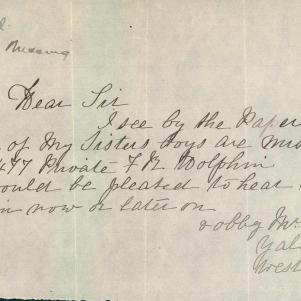 Missing
Dear Sir
I see by the Paper
of My Sisters boys are
477 Private F R Dolphin
would be pleased to hear
now or later on